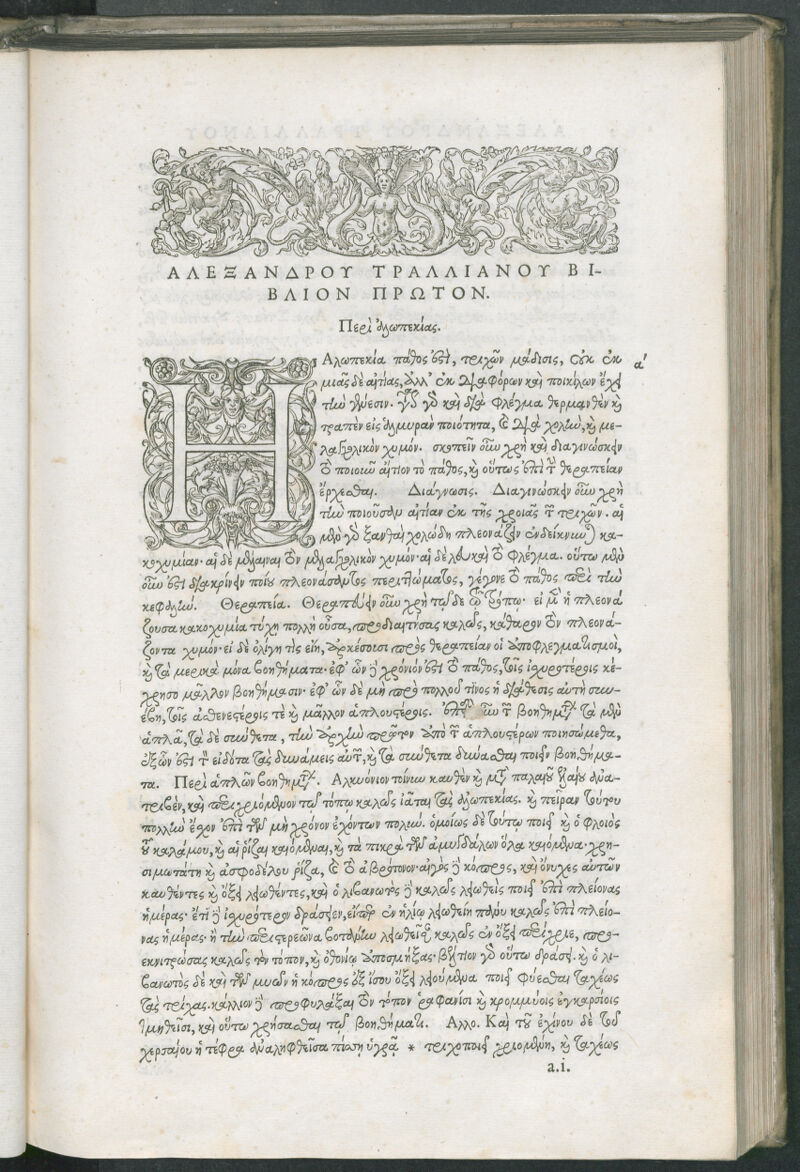 ΑΛΕΞΑΝΔΡΟΥ ΤΡΑΛΛΙΑΝΟΥ ΒΙ-
ΒΛΙΟΝ ΠΡΩΤΟΝ.
Περὶ ἀλωπεκίας.
Η Αλωπεκία πάθος ἐστὶ, τριχῶν μάδισις, οὐκ ἐκ
α'
μιᾶς δὲ αἰτίας, ἀλλ' ἐκ διαφόρων καὶ ποικίλων ἔχει
τὴν γένεσιν. καὶ διὰ φλέγμα θερμανθὲν καὶ
τραπὲν εἰς ἁλμυρὰν ποιότητα, καὶ διὰ χολὴν, καὶ με-
λαγχολικὸν χυμόν. σκοπεῖν οὖν χρὴ καὶ διαγινώσκειν
τὸ ποιοῦν αἴτιον τὸ πάθος, καὶ οὕτως ἐπὶ τὴν θεραπείαν
ἔρχεσθαι. Διάγνωσις. Διαγινώσκειν οὖν χρὴ
τὴν ποιοῦσαν αἰτίαν ἐκ τῆς χροιᾶς τῶν τριχῶν. αἱ
μὲν γὰρ ξανθαὶ χολώδη πλεονάζειν ἐνδείκνυνται κα-
κοχυμίαν· αἱ δὲ μέλαιναι τὸν μελαγχολικὸν χυμόν· αἱ δὲ λευκαὶ τὸ φλέγμα. οὕτω μὲν
οὖν ἐστὶ διακρίνειν ποίου πλεονάσαντος περιττώματος, γέγονε τὸ πάθος περὶ τὴν
κεφαλήν. Θεραπεία. Θεραπεύειν οὖν χρὴ τῷδε τῷ τρόπῳ· εἰ μὲν ἡ πλεονά
ζουσα κακοχυμία τύχῃ πολλὴ οὖσα, προδιαιτήσας καλῶς, κάθαρον τὸν πλεονά-
ζοντα χυμόν· εἰ δὲ ὀλίγη τὶς εἴη, ἀρκέσουσι πρὸς θεραπείαν οἱ ἀποφλεγματισμοὶ,
καὶ τὰ μερικὰ μόνα βοηθήματα· ἐφ' ὧν χρόνιόν ἐστι τὸ πάθος, τοῖς ἰσχυροτέροις κέ-
χρησο μᾶλλον βοηθήμασιν· ἐφ' ὧν δὲ μὴ πρὸ πολλοῦ τινος ἡ διάθεσις αὐτὴ συν-
έβη, τοῖς ἀσθενεστέροις τὲ καὶ μᾶλλον ἁπλουστέροις. τῶν βοηθημάτων τὰ μὲν
ἁπλᾶ, τὰ δὲ σύνθετα, τὴν ἀρχὴν πρῶτον ἀπὸ τῶν ἁπλουστέρων ποιησώμεθα,
ἐξ ὧν ἐστὶ εἰδότα τὰς δυνάμεις αὐτῶν, καὶ τὰ σύνθετα δύνασθαι ποιεῖν βοηθήμα-
τα. Περὶ ἁπλῶν βοηθημάτων. Αλκυόνιον τοίνυν καυθὲν καὶ μετὰ παλαιοῦ ἐλαίου ἀνα-
τριβὲν, καὶ περιχριόμενον τῷ τόπῳ καλῶς ἰᾶται τὰς ἀλωπεκίας. καὶ πεῖραν τούτου
πολλὴν ἔχον ἐπὶ τῶν μὴ χρόνον ἐχόντων πολύν. ὁμοίως δὲ τούτῳ ποιεῖ καὶ ὁ φλοιὸς
τοῦ καλάμου, καὶ αἱ ῥίζαι καιόμεναι, καὶ τὰ πικρὰ τῶν ἀμυγδάλων ὅλα καιόμενα· χρη-
σιμωτάτη καὶ ἀσφοδέλου ῥίζα, καὶ τὸ ἀβρότονον· αἰγὸς κόπρος, καὶ ὄνυχες αὐτῶν
καυθέντες καὶ ὄξει λειωθέντες, καὶ ὁ λιβανωτὸς καλῶς λειωθεὶς ποιεῖ ἐπὶ πλείονας
ἡμέρας· ἔτι ἰσχυρότερον δράσειεν, εἴπερ ἐν ἡλίῳ λειωθείη πάνυ καλῶς ἐπὶ πλείο-
νας ἡμέρας· ἢ τὴν περιστερεῶνα βοτάνην λειωθεῖσαν καλῶς ἐν ὄξει περίχριε, προ-
εκνιτρώσας καλῶς τὸν τόπον, καὶ ὀθονίῳ ἀποσμήξας· βέλτιον γὰρ οὕτω δράσει. καὶ ὁ λι-
βανωτὸς δὲ καὶ τῶν μυῶν ἡ κόπρος ἐξ ἴσου ὄξει λειούμενα ποιεῖ φύεσθαι ταχέως
τὰς τρίχας. κάλλιον προφυλάξαι τὸν τόπον ῥαφανίσι καὶ κρομμύοις ἐγκαρσίοις
τμηθεῖσι, καὶ οὕτω χρήσασθαι τῷ βοηθήματι. Αλλο. Καὶ τοῦ ἐχίνου δὲ τοῦ
χερσαίου ἡ τέφρα ἀναληφθεῖσα πίσσῃ ὑγρᾷ * τριχοποιεῖ χριομένη, καὶ ταχέως
a.i.